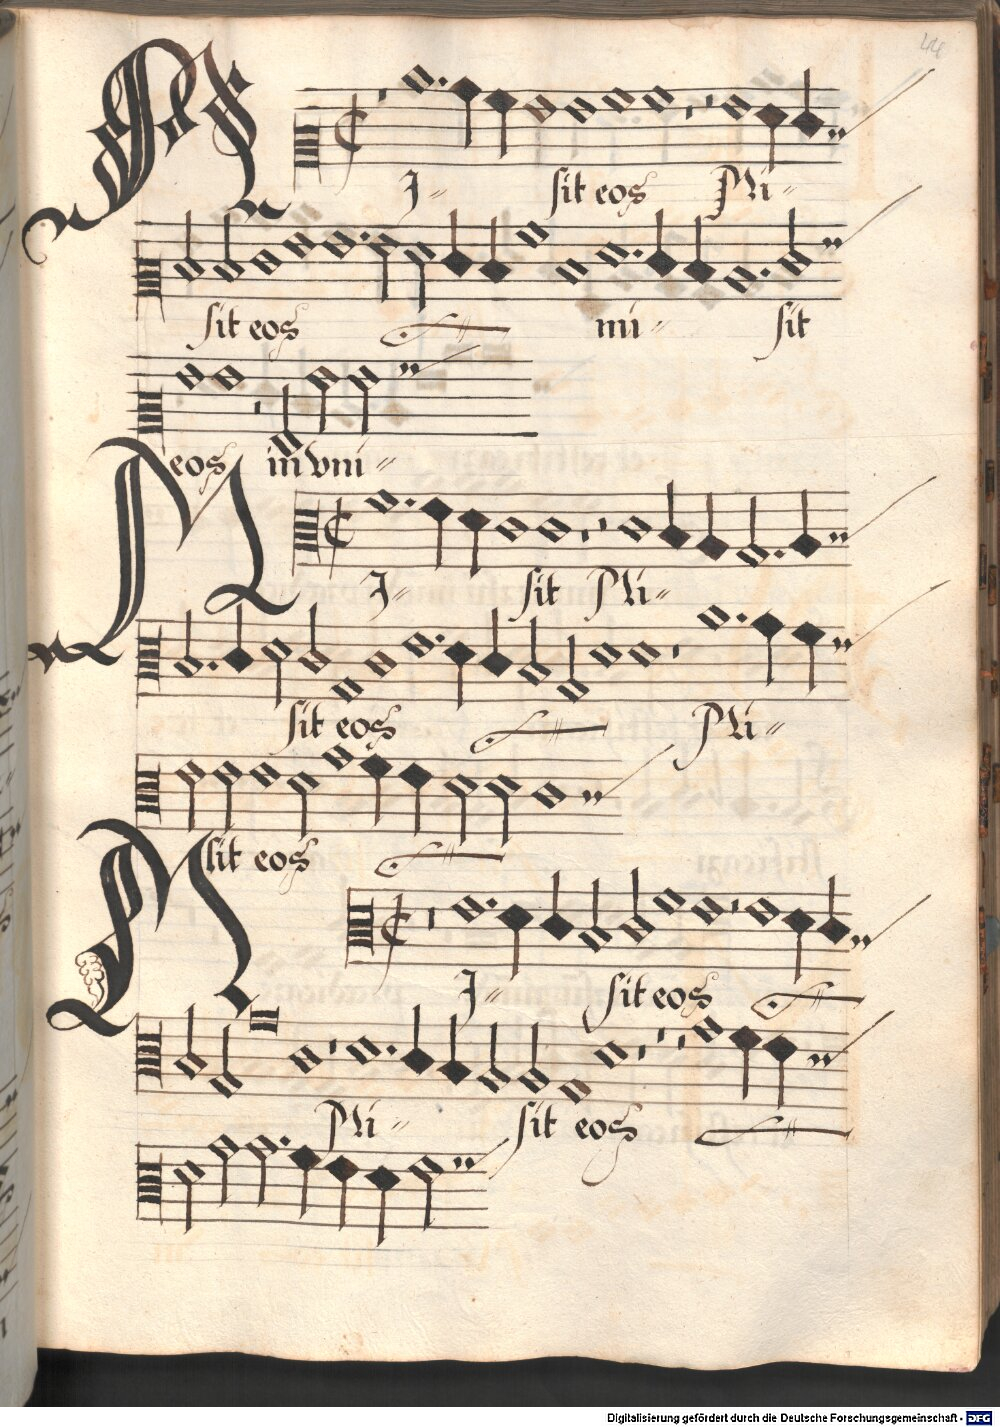 44
MI- sit eos Mi-
sit eos mi- sit
eos in vni-
MI- sit Mi-
sit eos Mi-
sit eos
MI- sit eos
Mi- sit eos
Digitalisierung gefördert durch die Deutsche Forschungsgemeinschaft - DFG